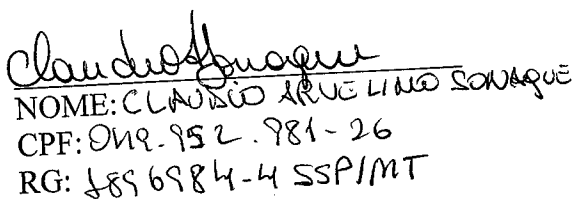 Claudio A Sonaque
NOME: CLAUDIO ARVELINO SONAQUE
CPF: 049.952.981-26
RG: 1896984-4 SSP/MT